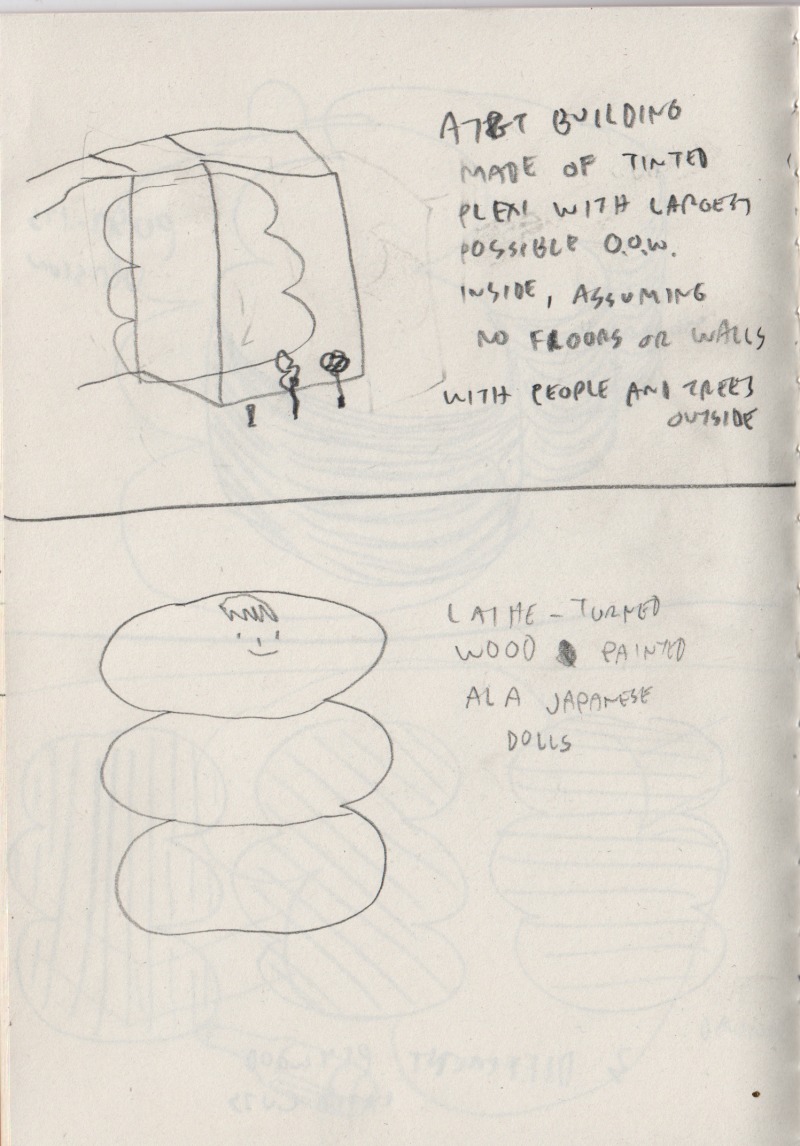 AT&T BUILDING
MADE OF TINTED
PLEXI WITH LARGEST
POSSIBLE O.O.W.
INSIDE, ASSUMING
NO FLOORS OR WALLS
WITH PEOPLE AND TREES
OUTSIDE
LATHE-TURNED
WOOD PAINTED
ALA JAPANESE
DOLLS